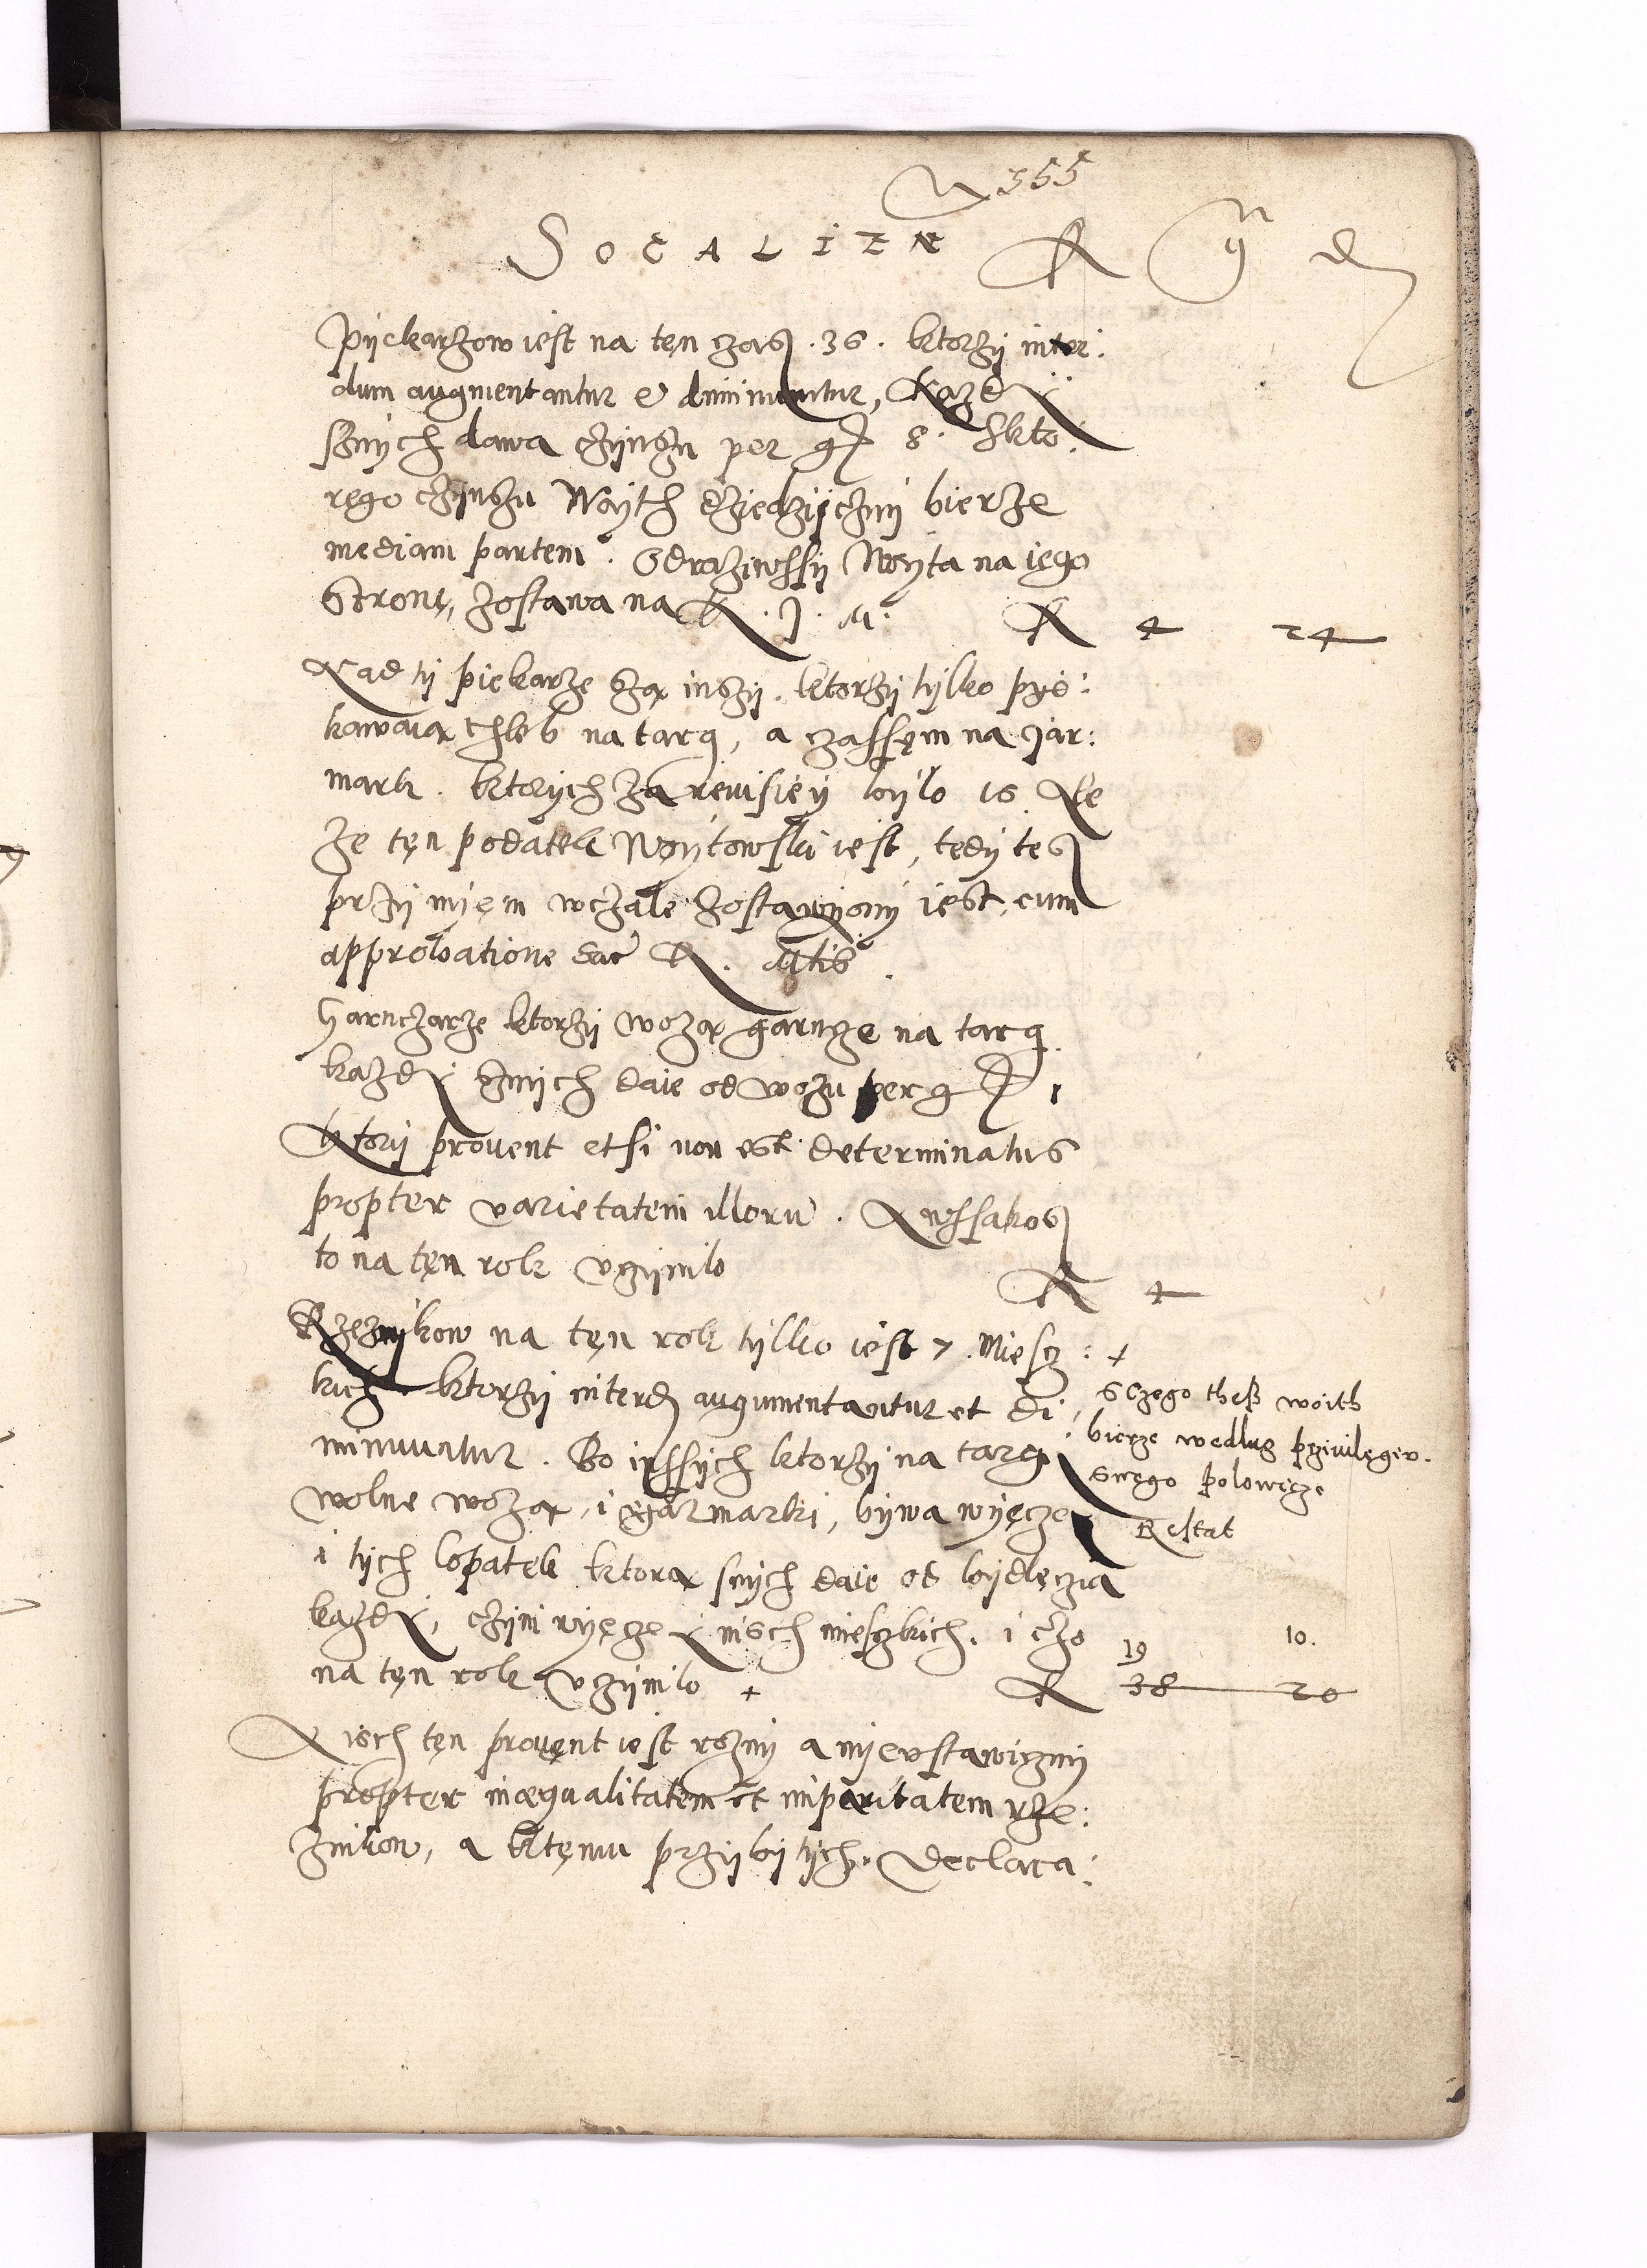 355
SOCALIEN
Pyekarzow iest na tęn czas . 36 . ktorzÿ inter:
dum augmentantur et diminuuntur, Kazdÿ
sznich dawa czÿnszu per g 8. Skto:
rego czÿnszu Woÿth dziedzÿcznÿ bierze
mediam partem . Odraziwssÿ Woÿta na iego
Stronę, zostawa na K . J . M. 4 24
Nad tÿ piekarze szą inszÿ . ktorzÿ tÿlko pye:
kawaią chleb na targ, a czassęm na Jar:
mark . ktorÿch za rewisieÿ bÿlo 16 Ale
ze tęn podatek Woÿtowski iest, tedÿ tes
przÿ niÿem wczale zostawÿonÿ iest, cum
approbatione Sac R . Mtis .
Harnczarze ktorzÿ wozą garnze na targ
kazdÿ znich daie od wozu per g 1
Ktorÿ prouent etsi non est determinatus
propter varietatem illoru . A wssakos
to na tęn rok vczÿnilo 4
Rzeznÿkow na tęn rok tÿlko iest 7 . Miesz: +
kich ktorzÿ interd augumentantur et di
minuuntur . Bo inssÿch ktorzÿ na targ
wolne wozą, i Jarmarki, bÿwa wÿęcze
i tÿch lopatek ktorą snÿch daie od bÿdlęczia
kazdÿ, czÿni wÿęcze nisch mieszkich. i czo
na tęn rok vczÿnilo +
Sczego theß woith
bierze wedlug prziuilęgeo.
swęgo polowęcze
Restat
19 10.
38 20
A isch tęn prouęnt iest roznÿ a nÿeustawicznÿ
propter inæqualitatem et imparitatem rze:
znikow, a ktęmu przÿbÿtÿch. Declara: